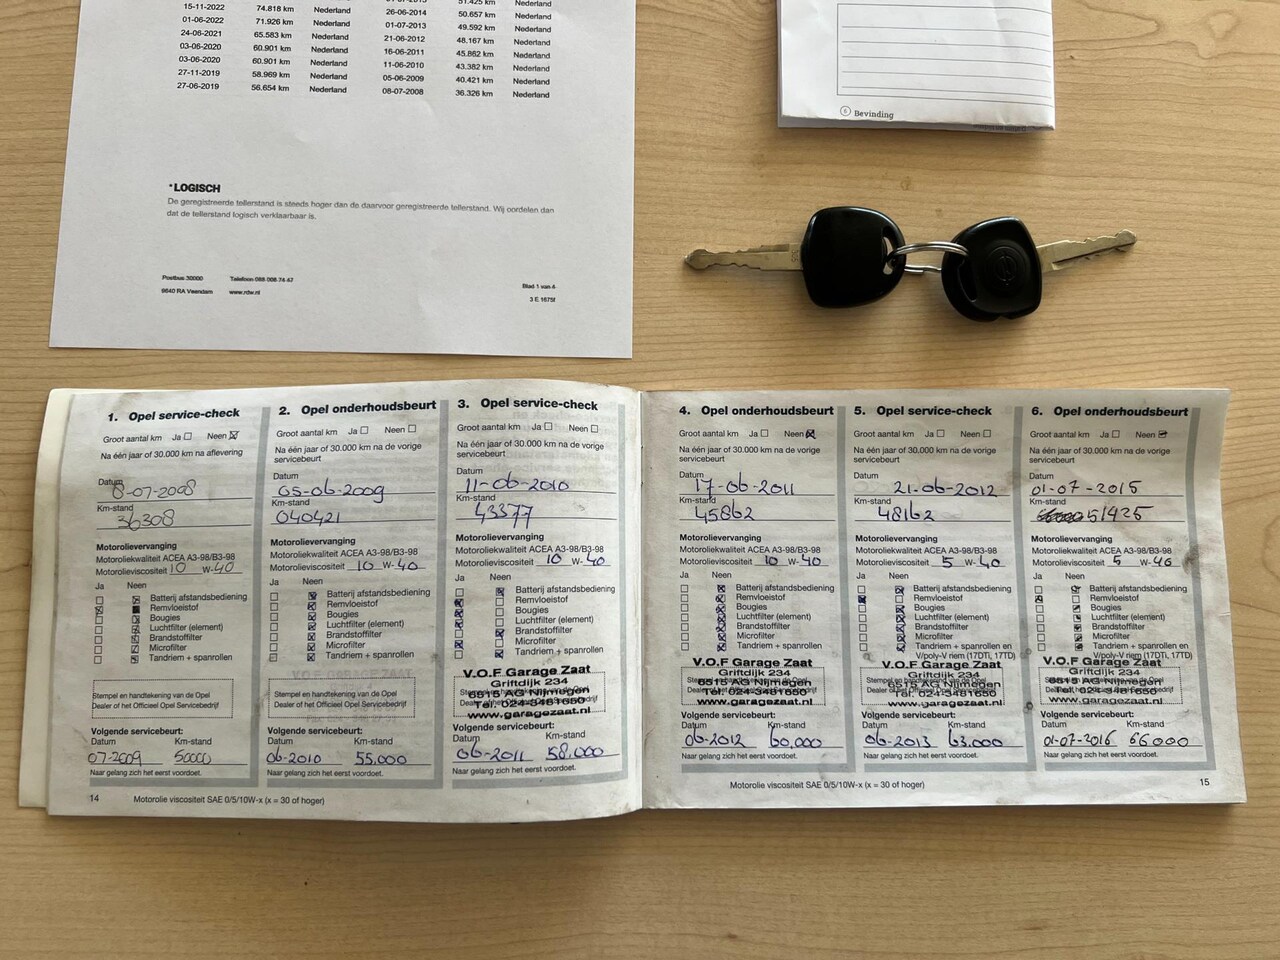 51.425 km Nederland
15-11-2022 74.818 km Nederland 26-06-2014 50.657 km Nederland
01-06-2022 71.926 km Nederland 01-07-2013 49.592 km Nederland
24-06-2021 65.583 km Nederland 21-06-2012 48.167 km Nederland
03-06-2020 60.901 km Nederland 16-06-2011 45.862 km Nederland
03-06-2020 60.901 km Nederland 11-06-2010 43.382 km Nederland
27-11-2019 58.969 km Nederland 05-06-2009 40.421 km Nederland
27-06-2019 56.654 km Nederland 08-07-2008 36.326 km Nederland
*LOGISCH
De geregistreerde tellerstand is steeds hoger dan de daarvoor geregistreerde tellerstand. Wij oordelen dan
dat de tellerstand logisch verklaarbaar is.
Postbus 30000 Telefoon 088 008 74 47
9640 RA Veendam www.rdw.nl
Blad 1 van 4
3 E 1675f
6 Bevinding
1. Opel service-check
Groot aantal km Ja Neen
Na één jaar of 30.000 km na aflevering
Datum
8-07-2008
Km-stand
36308
Motorolievervanging
Motoroliekwaliteit ACEA A3-98/B3-98
Motorolieviscositeit 10 W-40
Ja Neen
Batterij afstandsbediening
Remvloeistof
Bougies
Luchtfilter (element)
Brandstoffilter
Microfilter
Tandriem + spanrollen
Stempel en handtekening van de Opel
Dealer of het Officieel Opel Servicebedrijf
Volgende servicebeurt:
Datum Km-stand
07-2009 50000
Naar gelang zich het eerst voordoet.
2. Opel onderhoudsbeurt
Groot aantal km Ja Neen
Na één jaar of 30.000 km na de vorige
servicebeurt
Datum
05-06-2009
Km-stand
040421
Motorolievervanging
Motoroliekwaliteit ACEA A3-98/B3-98
Motorolieviscositeit 10 W-40
Ja Neen
Batterij afstandsbediening
Remvloeistof
Bougies
Luchtfilter (element)
Brandstoffilter
Microfilter
Tandriem + spanrollen
Stempel en handtekening van de Opel
Dealer of het Officieel Opel Servicebedrijf
Volgende servicebeurt:
Datum Km-stand
06-2010 55.000
Naar gelang zich het eerst voordoet.
3. Opel service-check
Groot aantal km Ja Neen
Na één jaar of 30.000 km na de vorige
servicebeurt
Datum
11-06-2010
Km-stand
43377
Motorolievervanging
Motoroliekwaliteit ACEA A3-98/B3-98
Motorolieviscositeit 10 W-40
Ja Neen
Batterij afstandsbediening
Remvloeistof
Bougies
Luchtfilter (element)
Brandstoffilter
Microfilter
Tandriem + spanrollen
V.O.F Garage Zaat
Griftdijk 234
6515 AG Nijmegen
Tel. 024-3481650
www.garagezaat.nl
Volgende servicebeurt:
Datum Km-stand
06-2011 58.000
Naar gelang zich het eerst voordoet.
14 Motorolie viscositeit SAE 0/5/10W-x (x = 30 of hoger)
4. Opel onderhoudsbeurt
Groot aantal km Ja Neen
Na één jaar of 30.000 km na de vorige
servicebeurt
Datum
17-06-2011
Km-stand
45862
Motorolievervanging
Motoroliekwaliteit ACEA A3-98/B3-98
Motorolieviscositeit 10 W-40
Ja Neen
Batterij afstandsbediening
Remvloeistof
Bougies
Luchtfilter (element)
Brandstoffilter
Microfilter
Tandriem + spanrollen
V.O.F Garage Zaat
Griftdijk 234
6515 AG Nijmegen
Tel. 024-3481650
www.garagezaat.nl
Volgende servicebeurt:
Datum Km-stand
06-2012 60.000
Naar gelang zich het eerst voordoet.
5. Opel service-check
Groot aantal km Ja Neen
Na één jaar of 30.000 km na de vorige
servicebeurt
Datum
21-06-2012
Km-stand
48162
Motorolievervanging
Motoroliekwaliteit ACEA A3-98/B3-98
Motorolieviscositeit 5 W-40
Ja Neen
Batterij afstandsbediening
Remvloeistof
Bougies
Luchtfilter (element)
Brandstoffilter
Microfilter
Tandriem + spanrollen en
V/poly-V riem (17DTi, 17TD)
V.O.F Garage Zaat
Griftdijk 234
6515 AG Nijmegen
Tel. 024-3481650
www.garagezaat.nl
Volgende servicebeurt:
Datum Km-stand
06-2013 63.000
Naar gelang zich het eerst voordoet.
6. Opel onderhoudsbeurt
Groot aantal km Ja Neen
Na één jaar of 30.000 km na de vorige
servicebeurt
Datum
01-07-2015
Km-stand
51425
Motorolievervanging
Motoroliekwaliteit ACEA A3-98/B3-98
Motorolieviscositeit 5 W-40
Ja Neen
Batterij afstandsbediening
Remvloeistof
Bougies
Luchtfilter (element)
Brandstoffilter
Microfilter
Tandriem + spanrollen en
V/poly-V riem (17DTi, 17TD)
V.O.F Garage Zaat
Griftdijk 234
6515 AG Nijmegen
Tel. 024-3481650
www.garagezaat.nl
Volgende servicebeurt:
Datum Km-stand
01-07-2016 66000
Naar gelang zich het eerst voordoet.
Motorolie viscositeit SAE 0/5/10W-x (x = 30 of hoger) 15